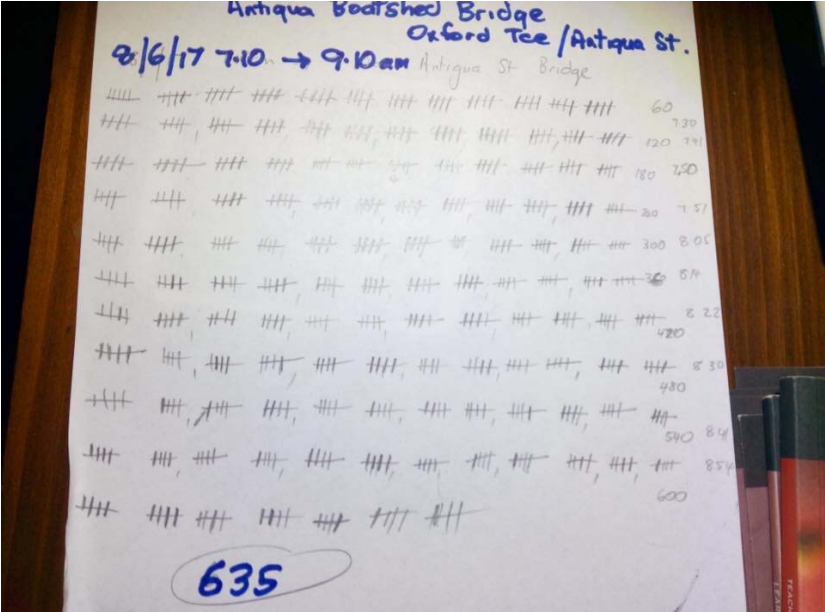 Antigua Boatshed Bridge
Oxford Tce / Antigua St.
8/6/17 7.10 → 9.10am Antigua St Bridge
60
7.30
120 7.41
180 7.50
240 7.51
300 8.05
360 8.14
8.22
420
8 30
480
540 8.41
8.54
600
635